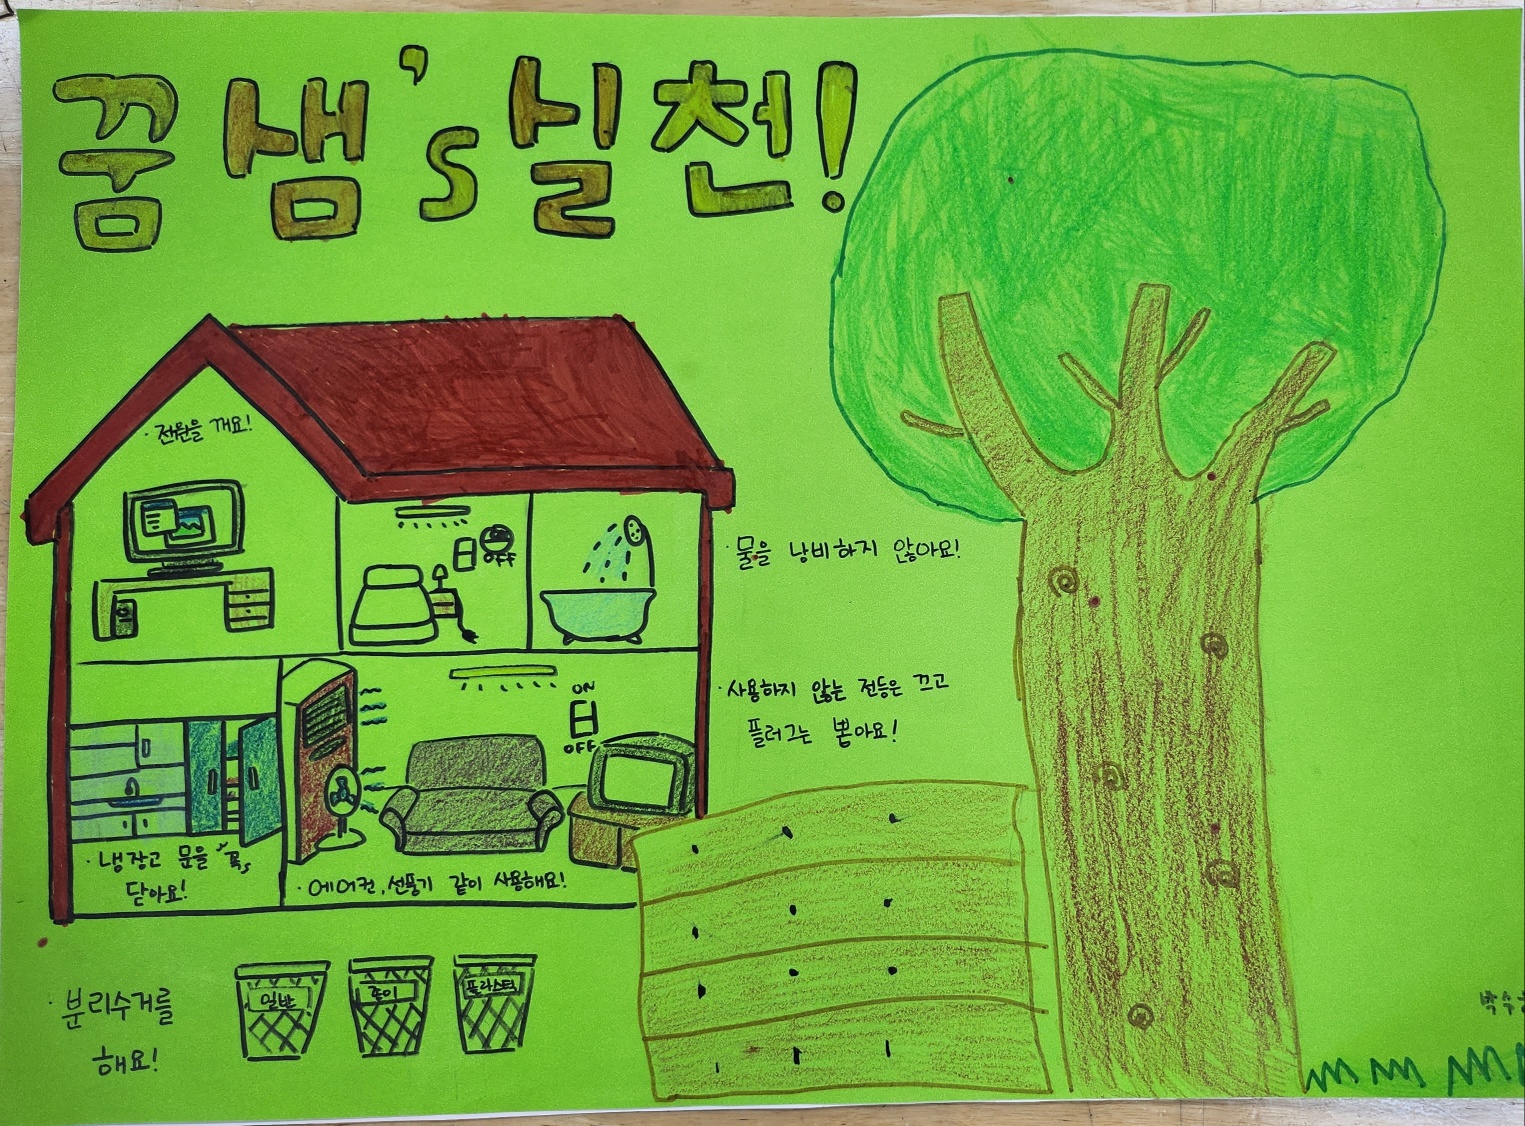 꿈샘's 실천!
· 전원을 꺼요!
OFF
· 물을 낭비하지 않아요!
· 사용하지 않는 전등은 끄고
플러그는 뽑아요!
ON
OFF
· 냉장고 문을 "꼭"
닫아요!
· 에어컨, 선풍기 같이 사용해요!
· 분리수거를
해요!
일반
종이
플라스틱